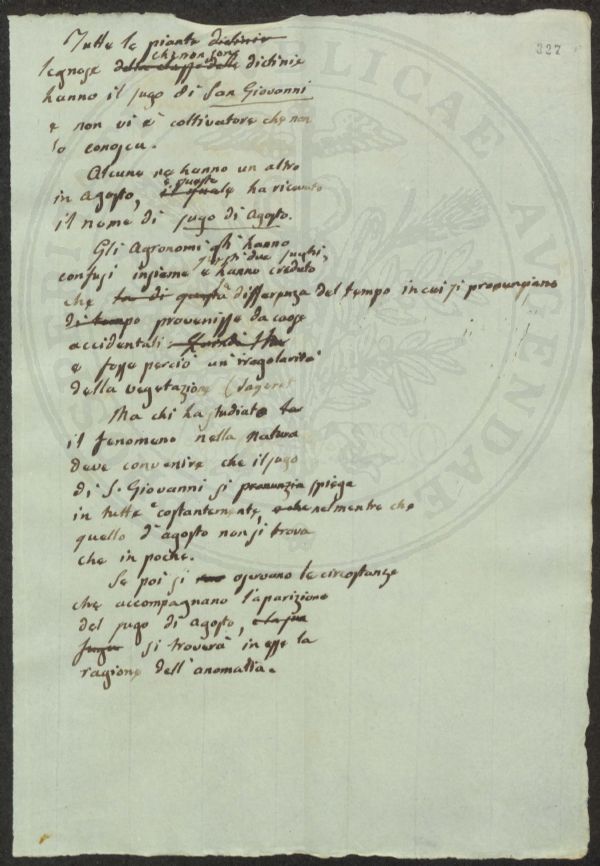 327
Tutte le piante diclinie
che non sono
legnose della classe delle diclinie
hanno il sugo di San Giovanni
e non vi è coltivatore che non
lo conosca.
Alcune ne hanno un altro
e questo
in Agosto, il quale ha ricevuto
il nome di sugo di Agosto.
Gli Agronomi gli hanno
questi due sughi,
confusi insieme e hanno creduto
che la di questa differenza del tempo in cui si pronunziano
di tempo provenisse da cause
accidentali. Quindi
e fosse perciò un'irregolarità
della vegetazione (Sageret
Ma chi ha studiato la
il fenomeno nella Natura
deve convenire che il sugo
di S. Giovanni si pronunzia spiega
in tutte costantemente, e che nel mentre che
quello d'agosto non si trova
che in poche.
Se poi si osservano le circostanze
che accompagnano l'aparizione
del sugo di Agosto, e la sua
si troverà in esse la
ragione dell'anomalia.